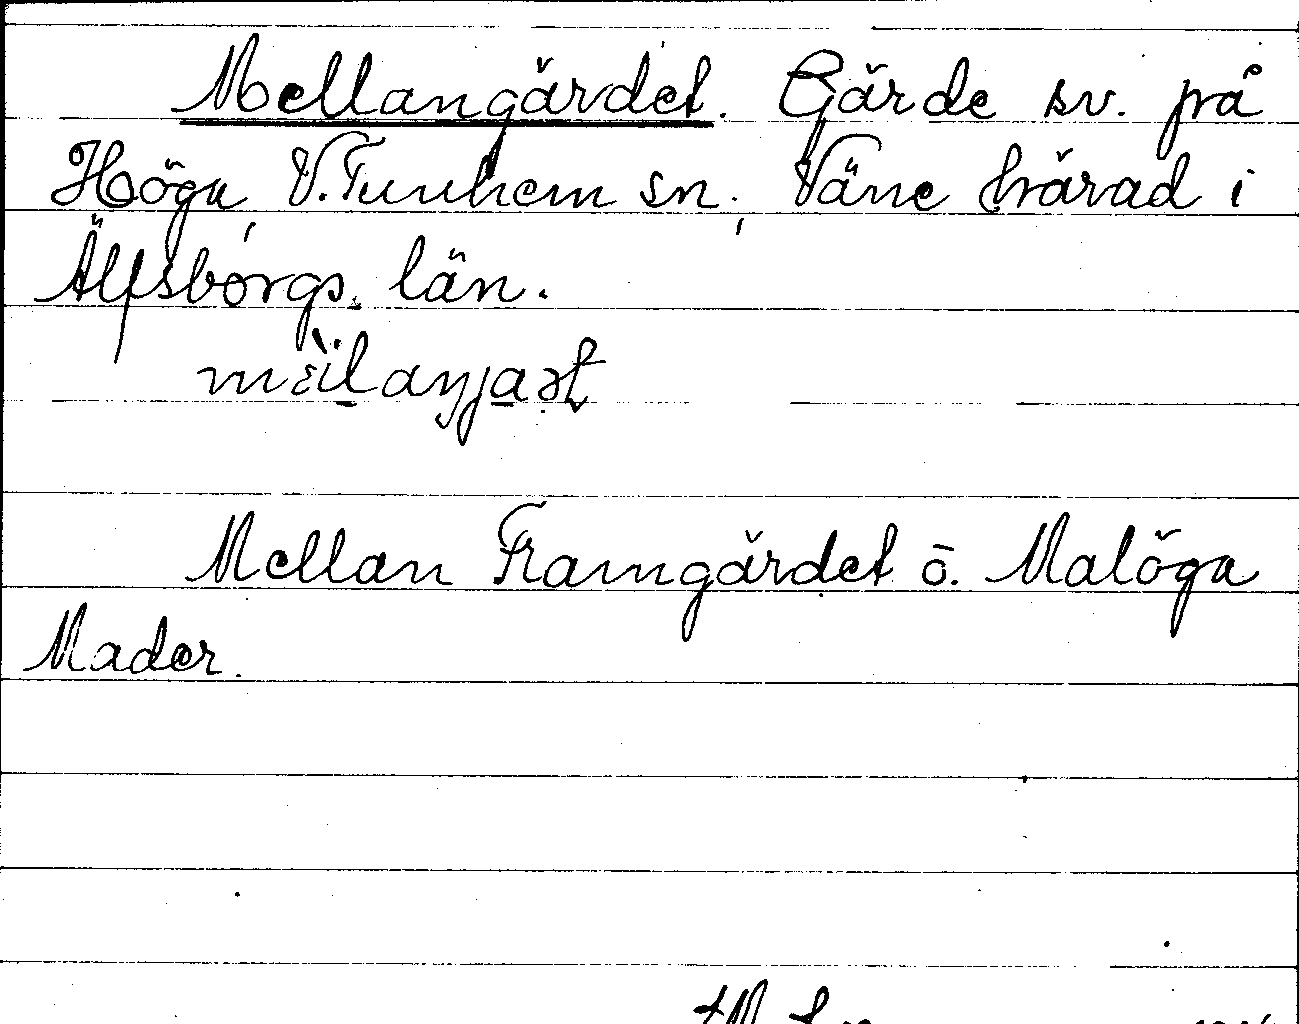 Mellangärdet. Gärde sv. på
Höga, V. Tunhem sn; Väne härad i
Älfsborgs län.
Mellan Framgärdet o. Malöga
Mader.